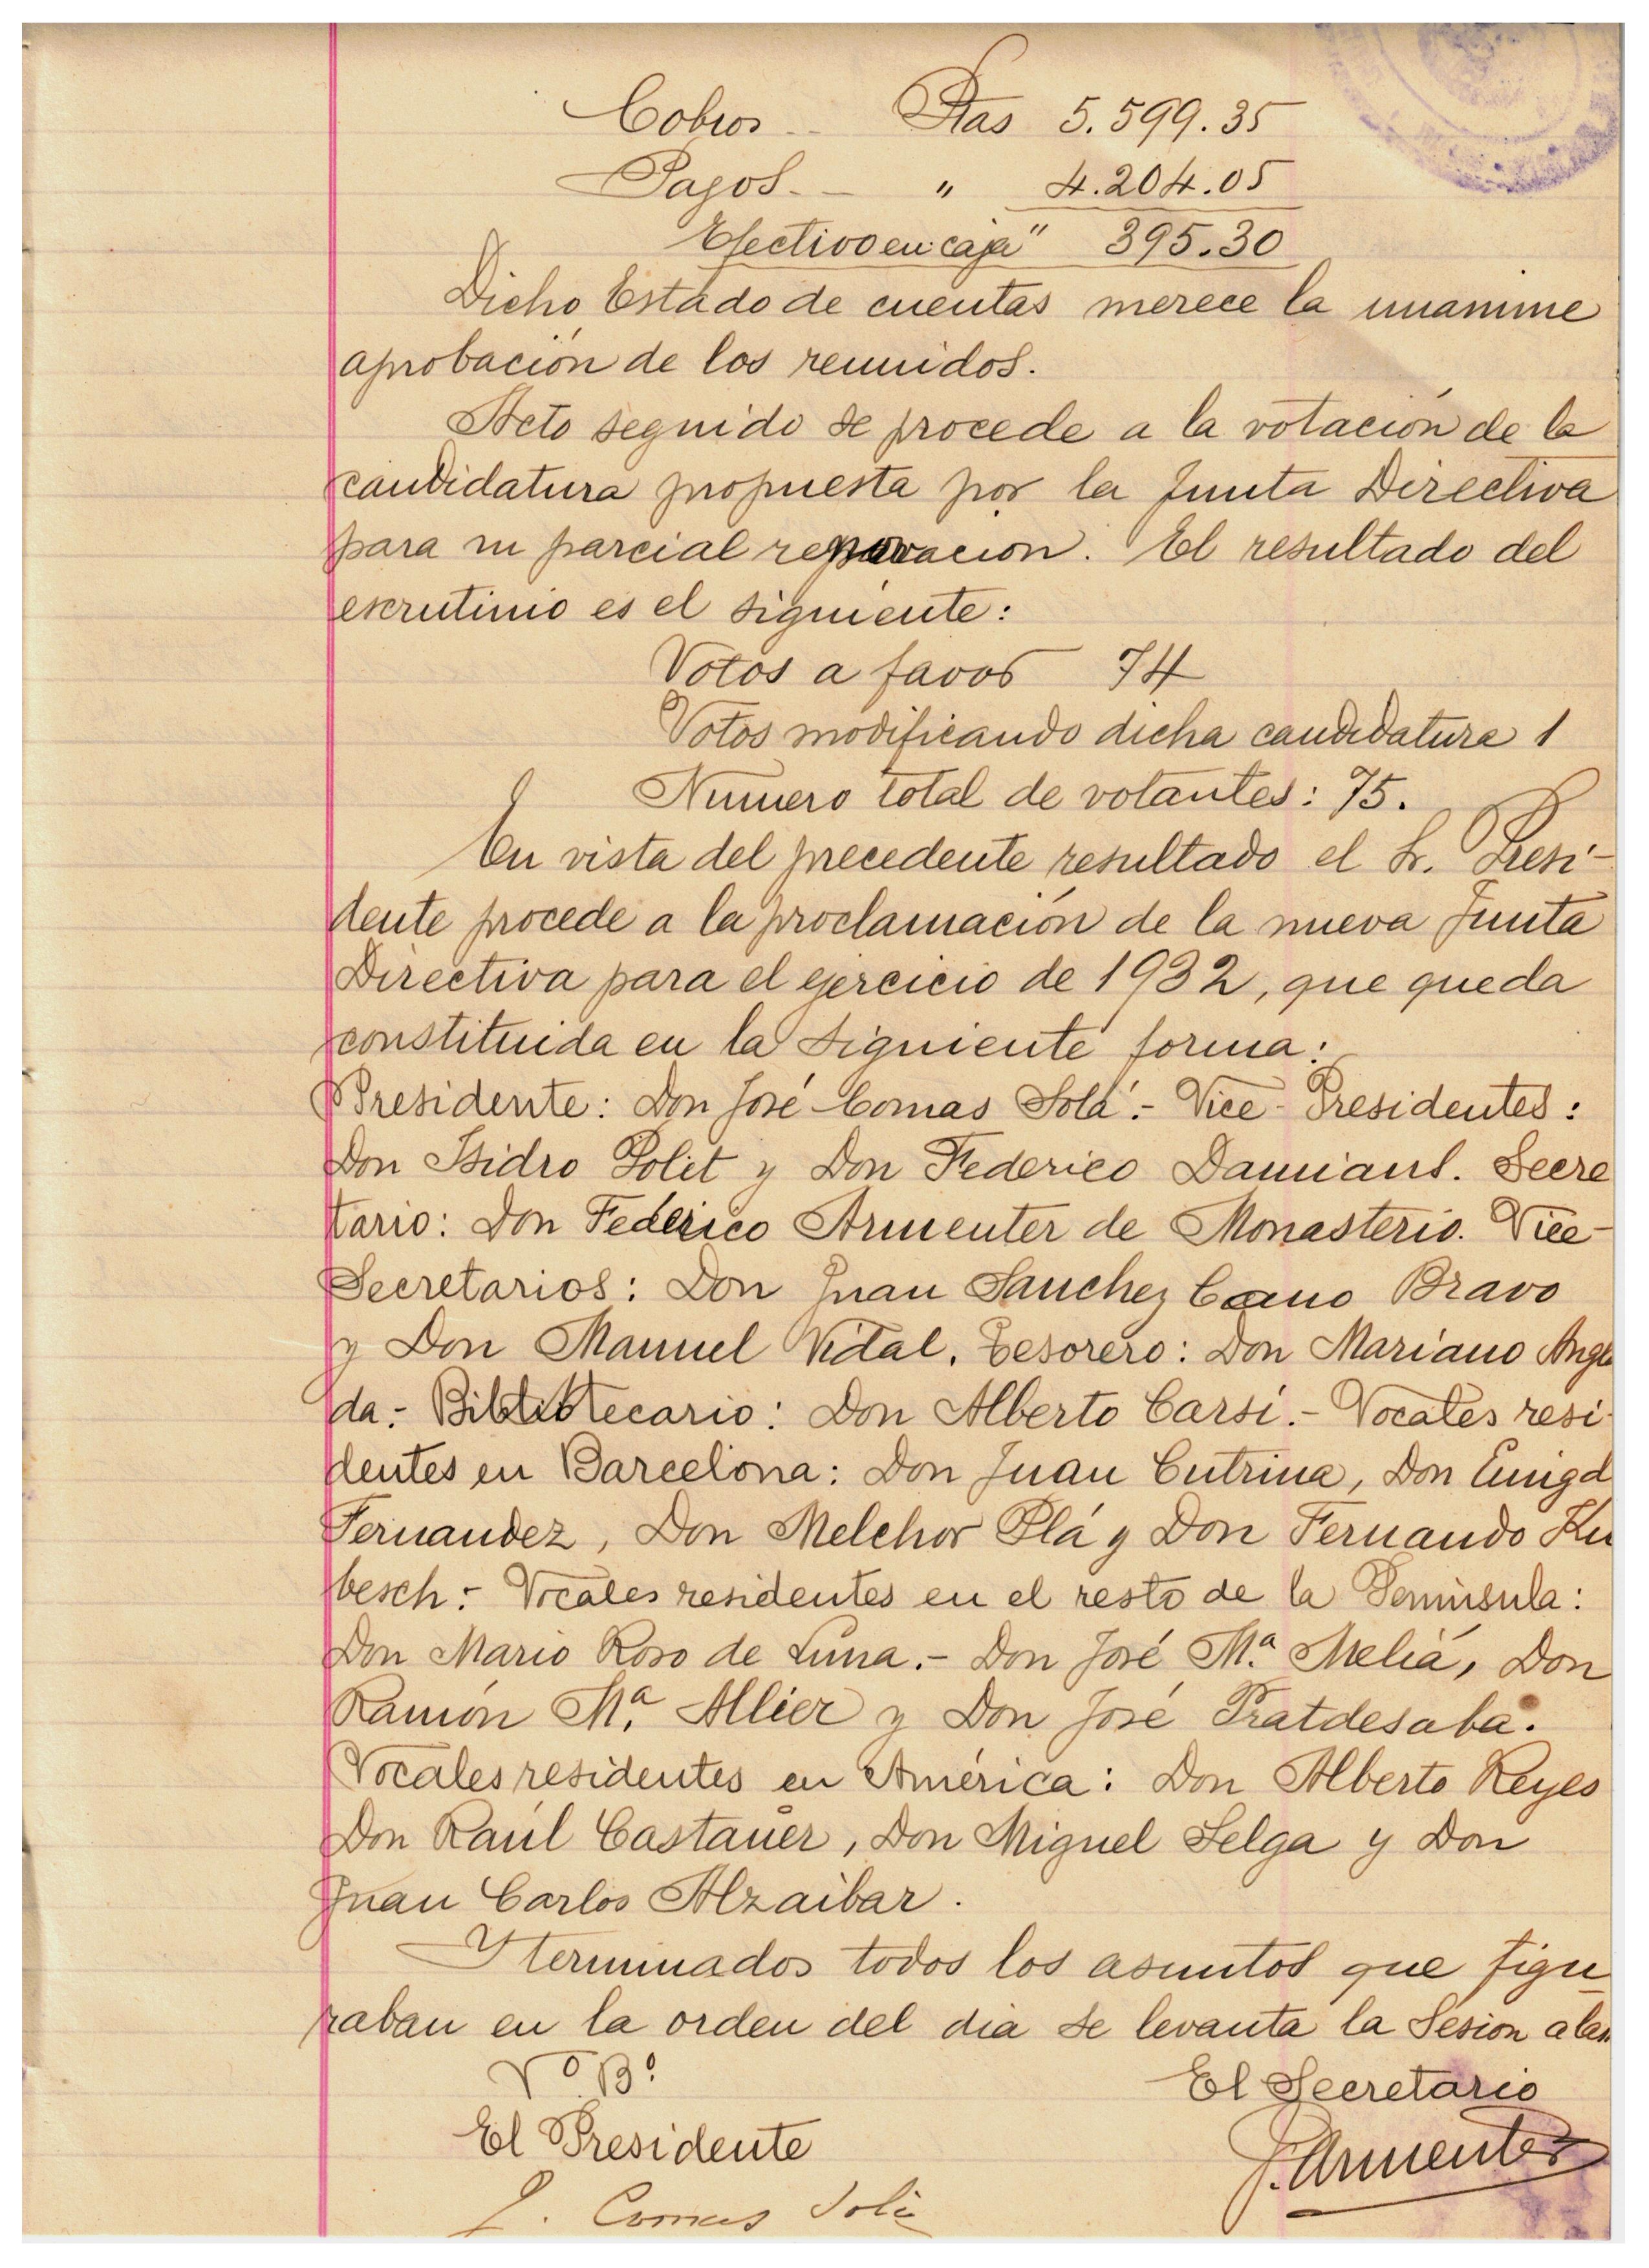 Cobros -- Ptas 5.599.35
Pagos. — " 4.204.05
Efectivo en caja " 395.30
Dicho Estado de cuentas merece la unanime
aprobación de los reunidos.
Acto seguido se procede a la votación de la
candidatura propuesta por la Junta Directiva
para su parcial renovacion. El resultado del
escrutinio es el siguiente:
Votos a favor 74
Votos modificando dicha candidatura 1
Numero total de votantes: 75.
En vista del precedente resultado el Sr. Presi-
dente procede a la proclamación de la nueva Junta
Directiva para el ejercicio de 1932, que queda
constituida en la siguiente forma:
Presidente: Don José Comas Solá.- Vice-Presidentes:
Don Isidro Polit y Don Federico Damians. Secre
tario: Don Federico Armenter de Monasterio. Vice-
Secretarios: Don Juan Sanchez Cano Bravo
y Don Manuel Vidal. Tesorero: Don Mariano Angla
da.- Bibliotecario: Don Alberto Carsí.- Vocales resi-
dentes en Barcelona: Don Juan Cutrina, Don Emigd
Fernandez, Don Melchor Plá y Don Fernando Ku
besch.- Vocales residentes en el resto de la Peninsula:
Don Mario Roso de Luna.- Don José Mª. Meliá, Don
Ramón Mª. Allier y Don José Pratdesaba.
Vocales residentes en América: Don Alberto Reyes
Don Raúl Castañer, Don Miguel Selga y Don
Juan Carlos Alzaibar.
Y terminados todos los asuntos que figu
raban en la orden del dia se levanta la Sesion a las
Vº Bº
El Secretario
El Presidente
F. Armenter
J. Comas Solá